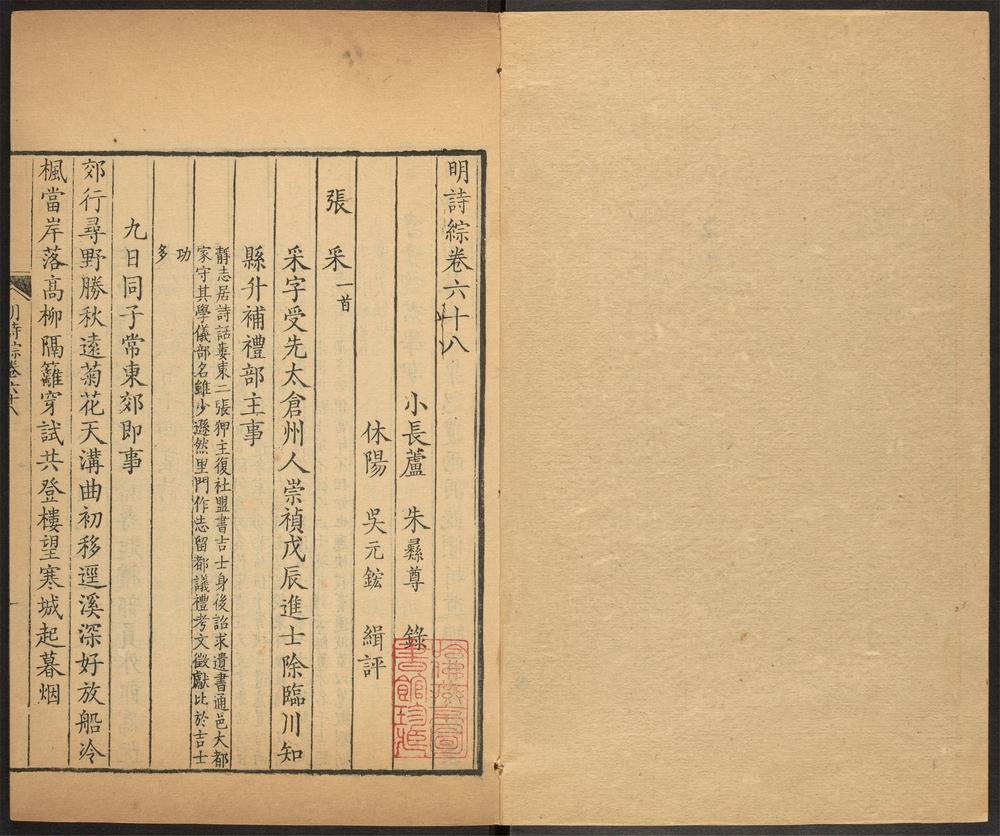 明詩綜卷六十八
小長蘆 朱彝尊 錄
休陽 吳元鋐 緝評
張 采 一首
采字受先太倉州人崇禎戊辰進士除臨川知
縣升補禮部主事
靜志居詩話婁東二張狎主復社盟書吉士身後詔求遺書通邑大都
家守其學儀部名雖少遜然里門作志留都議禮考文徵獻比於吉士
功
多
九日同子常東郊即事
郊行尋野勝秋遠菊花天溝曲初移逕溪深好放船冷
楓當岸落高柳隔籬穿試共登樓望寒城起暮烟
明詩綜卷六十八
一
哈佛燕京圖書館珍藏